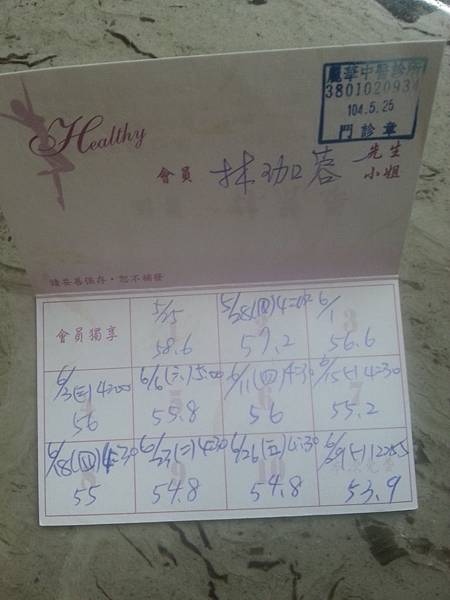 麗華中醫診所
3801020934
104.5.25
門診章
Healthy
會員 林珈蓉 先生
小姐
請妥善保存,恕不補發
會員獨享
5/25
58.6
5/28(四)4:00
57.2
6/1
56.6
6/3(三)4:00
56
6/6(六)5:00
55.8
6/11(四)4:30
56
6/15(一)4:30
55.2
6/18(四)4:30
55
6/23(二)4:30
54.8
6/26(五)4:30
54.8
6/29(一)
53.9